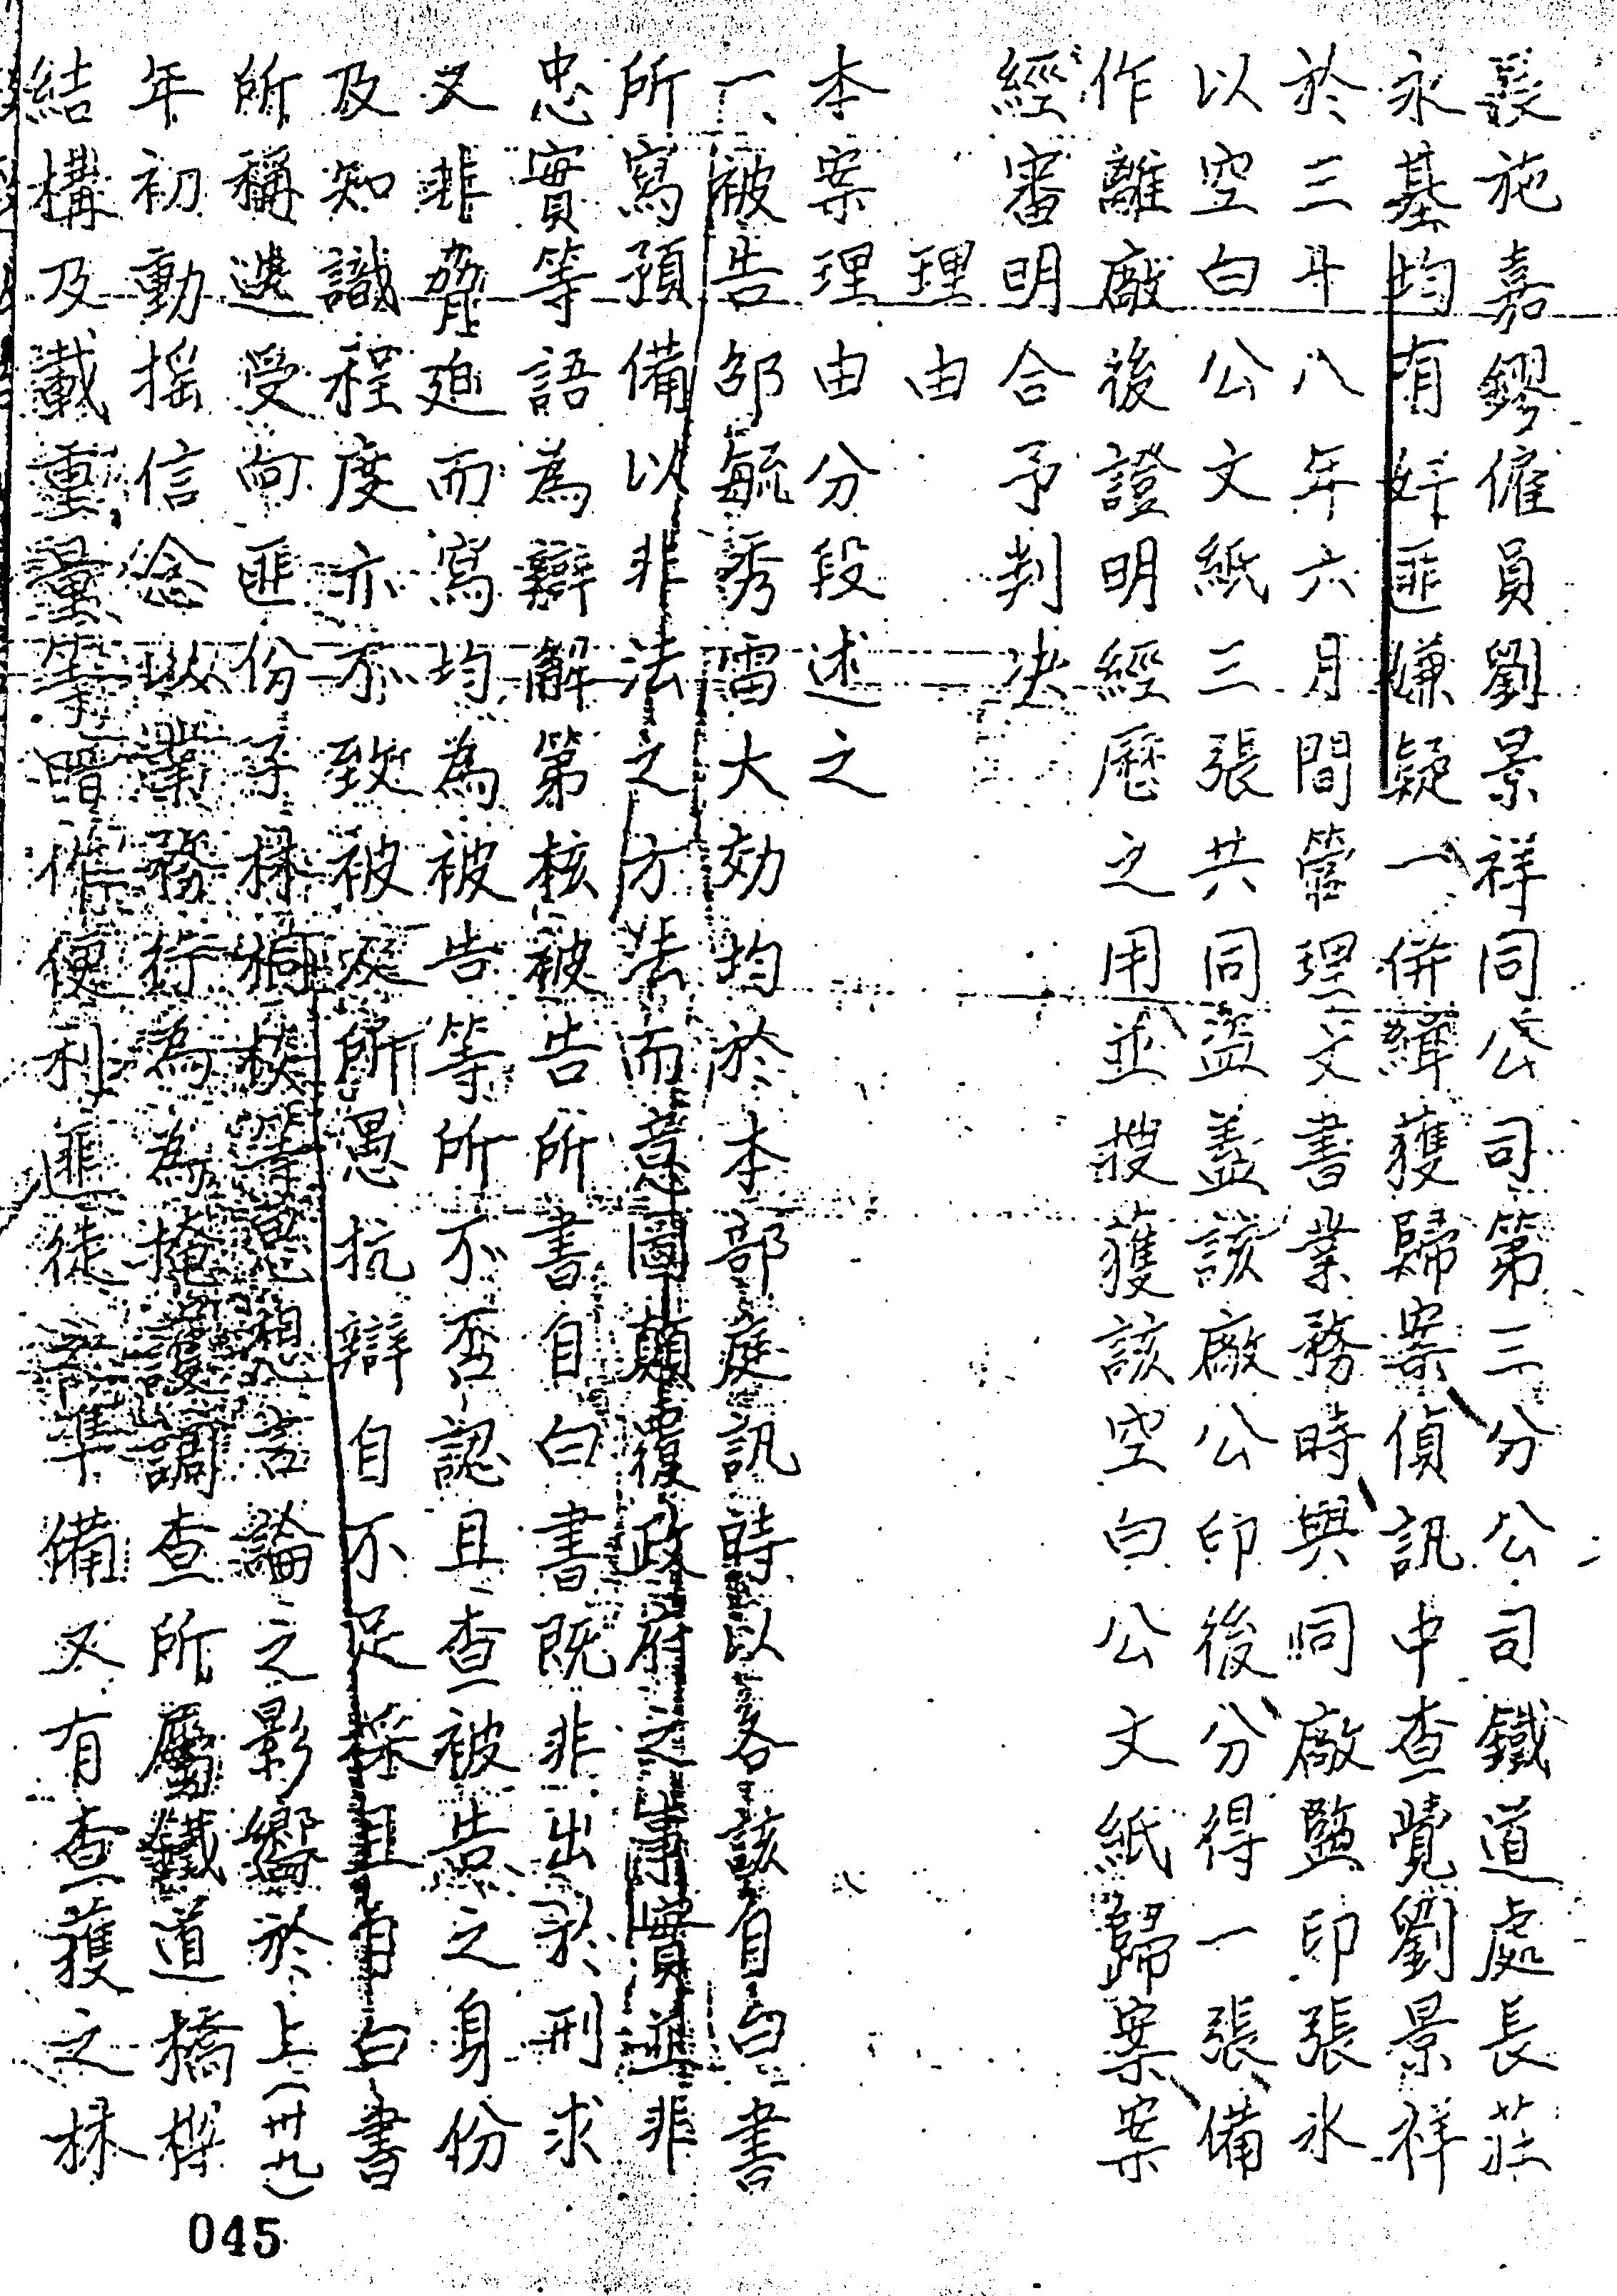 長施嘉鏐僱員劉景祥同公司第三分公司鐵道處長莊
永基均有奸匪嫌疑一併緝獲歸案偵訊中查覺劉景祥
於三十八年六月間管理文書業務時與同廠監印張水
以空白公文紙三張共同盜蓋該廠公印後分得一張備
作離廠後證明經歷之用並搜獲該空白公文紙歸案案
經審明合予判決
理由
本案理由分段述之
一、被告邵毓秀雷大効均於本部庭訊時以各該自白書
所寫預備以非法之方法而意圖顛覆政府之事實並非
忠實等語為辯解第核被告所書自白書既非出於刑求
又非脅迫而寫均為被告等所不否認且查被告之身份
及知識程度亦不致被人所愚抗辯自不足採且自白書
所稱遞受向匪份子林桐棪等思想言論之影響於上(卅九)
年初動搖信念以業務行為為掩護調查所屬鐵道橋樑
結構及載重量等暗作便利匪徒之準備又有查獲之林
045